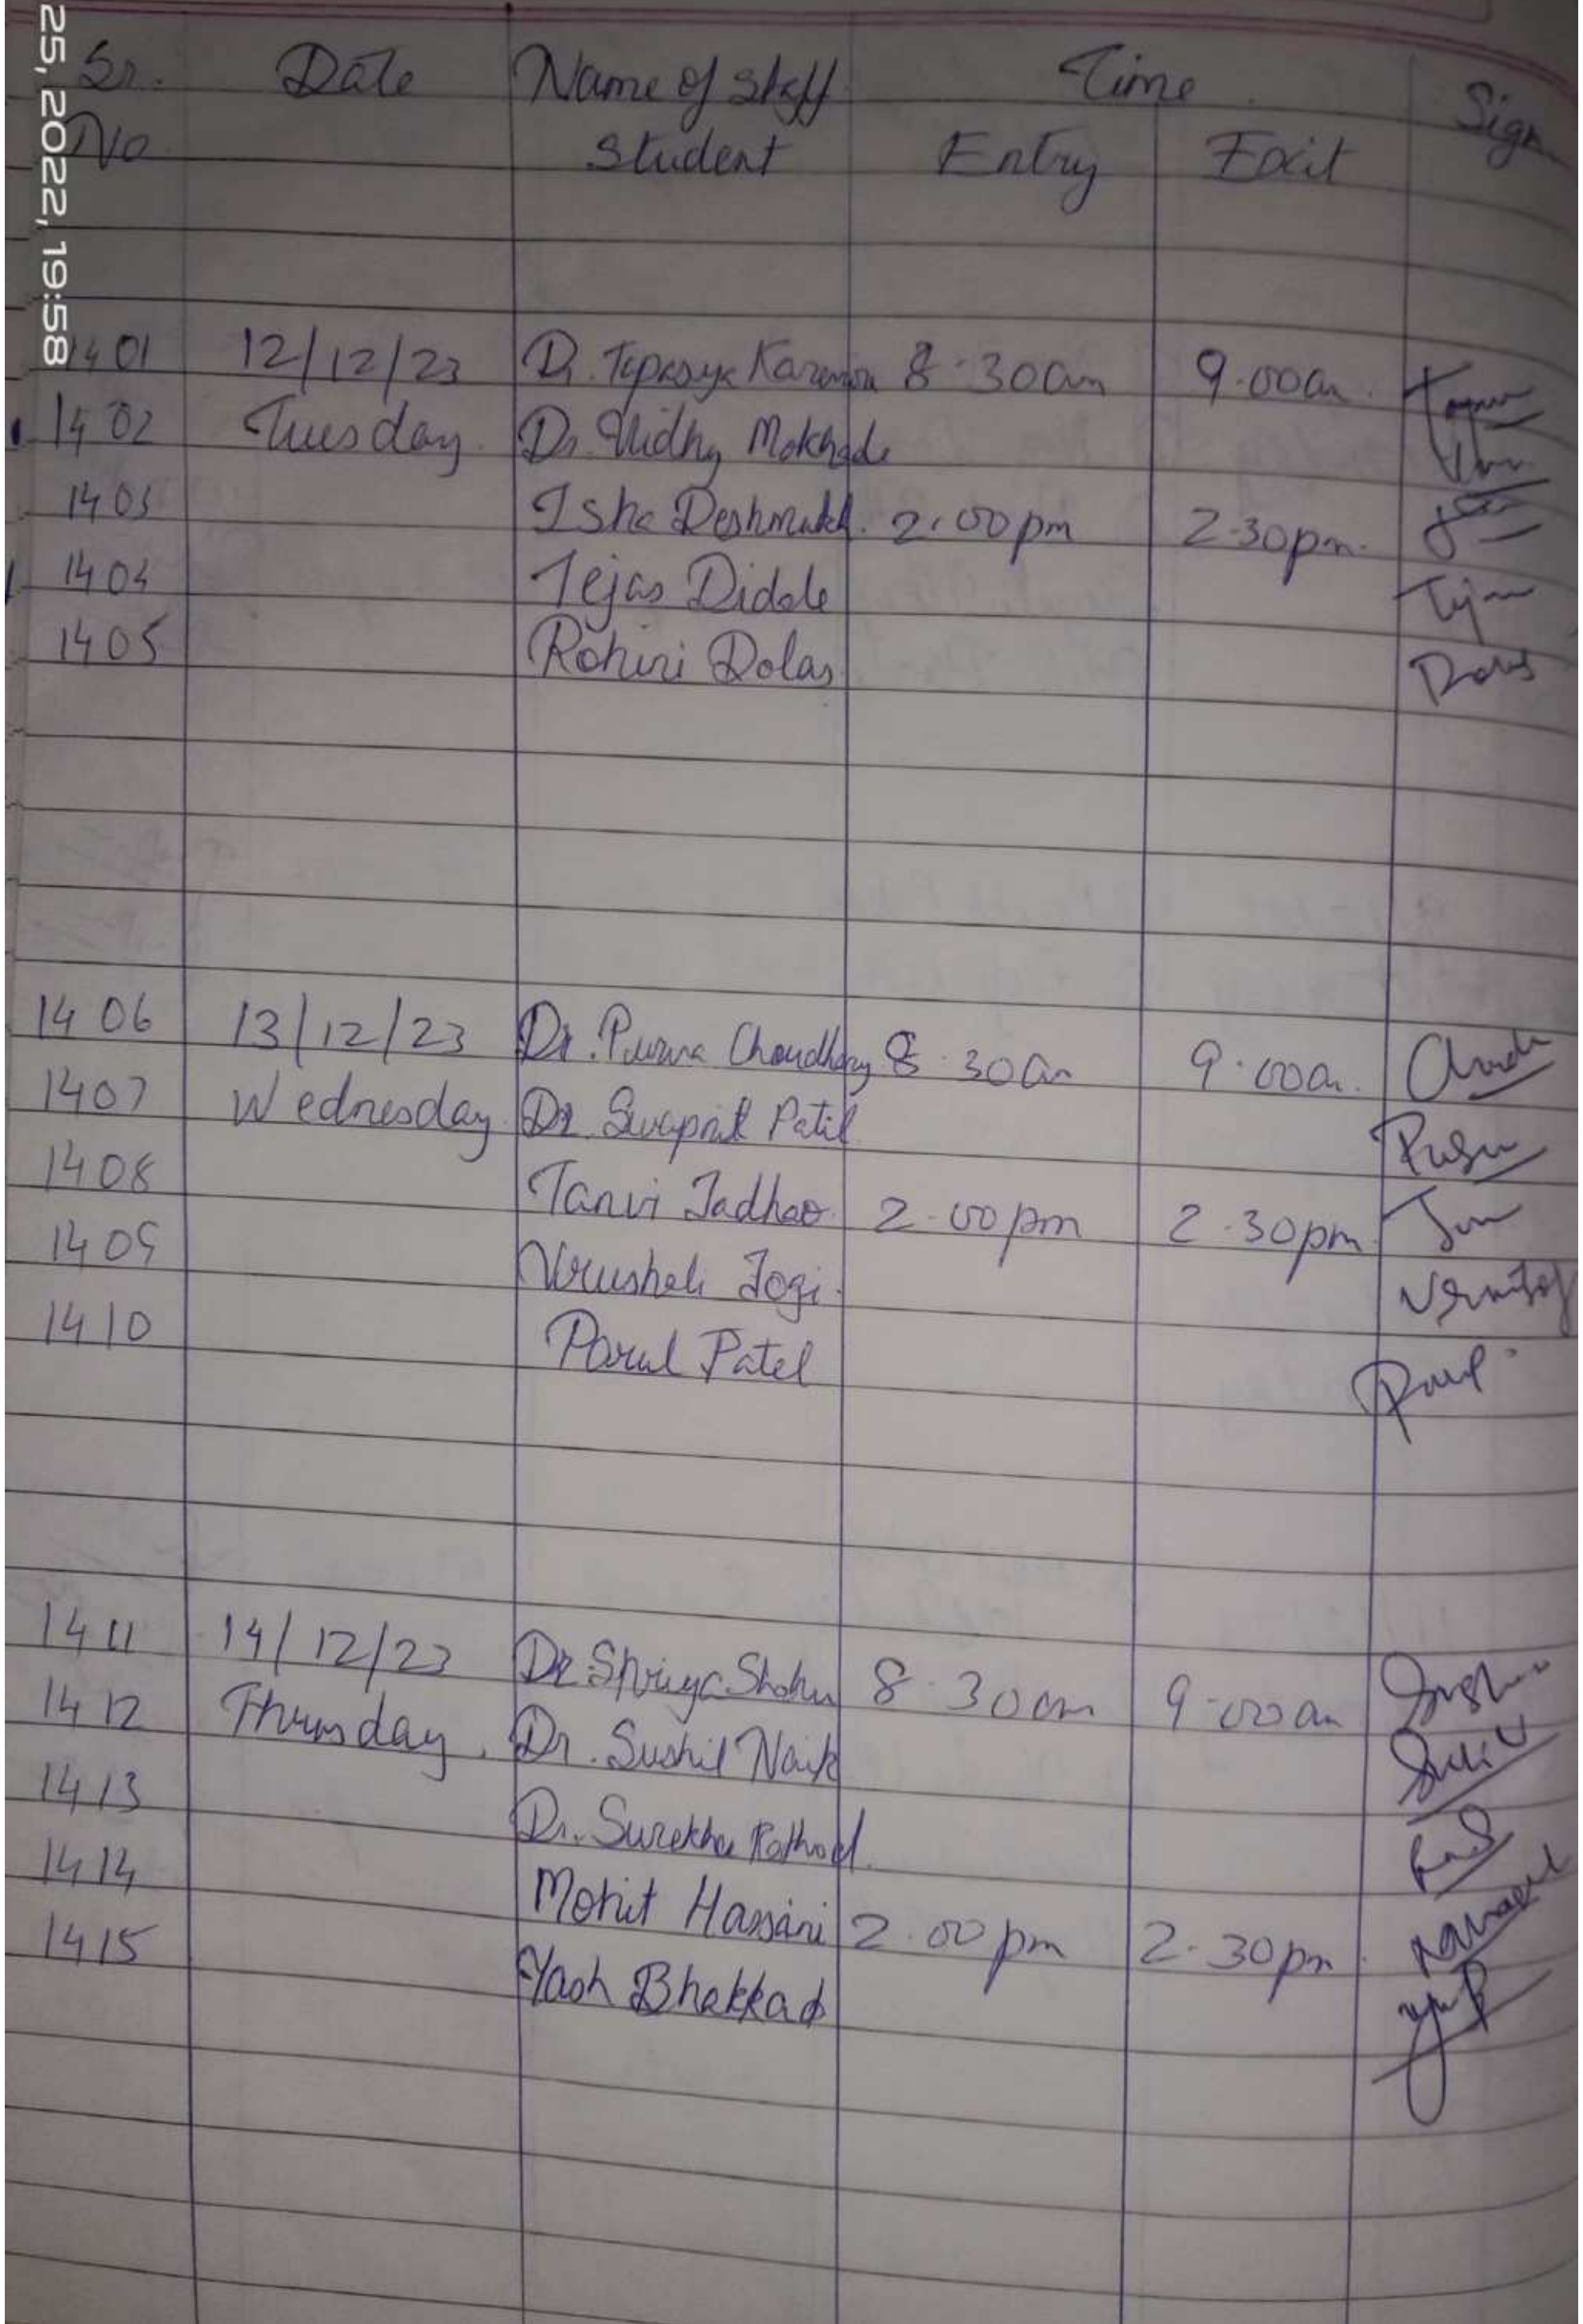 25, 2022, 19:58
Sr. Date Name of staff Time Sign
No student Entry Exit
1401 12/12/23 Dr. Tapasya 8.30am 9.00am
1402 Tuesday. Dr. Vidhy Mokhade
1403 Isha Deshmukh. 2.00pm 2.30pm.
1404 Tejas Didole Teja
1405 Rohini Dolas
1406 13/12/23 Dr. Purva Choudhary 8.30am 9.00am.
1407 Wednesday Dr. Swapnil Patil
1408 Tanvi Jadhao 2.00pm 2.30pm
1409 Vrushali Jogi.
1410 Parul Patel
1411 14/12/23 Dr. 8.30am 9.00am
1412 Thursday. Dr. Sushil Naik
1413 Dr. Surekha Rathod.
1414 Mohit Hassani 2.00pm 2.30pm.
1415 Yash Bhakkad